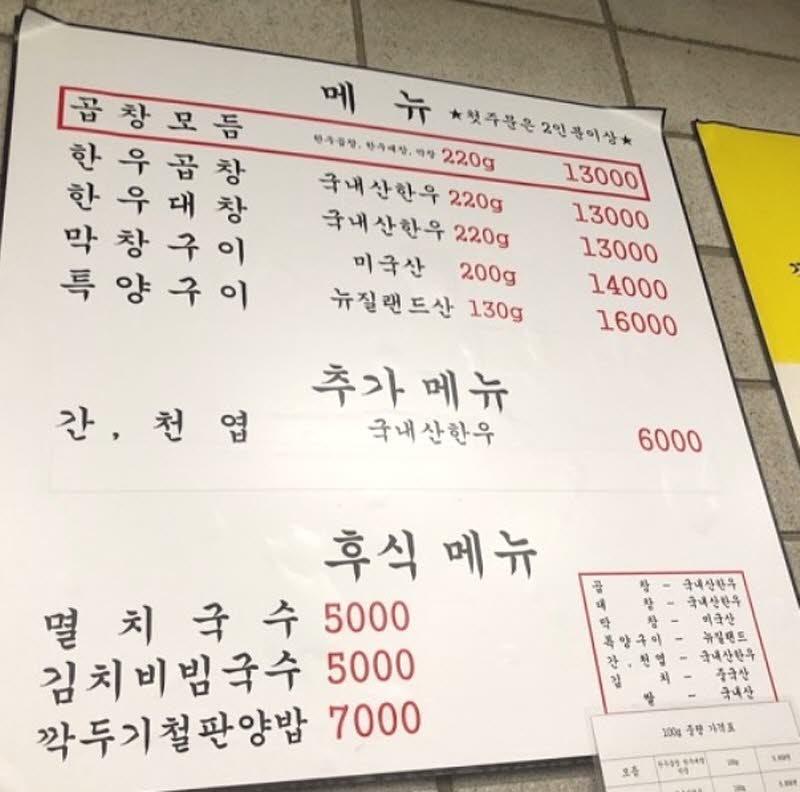 메 뉴 ★첫주문은 2인분이상★
곱 창 모 듬 한우곱창, 한우대창, 막창 220g 13000
한 우 곱 창 국내산한우 220g 13000
한 우 대 창 국내산한우 220g 13000
막 창 구 이 미국산 200g 14000
특 양 구 이 뉴질랜드산 130g 16000
추가 메뉴
간 , 천 엽 국내산한우 6000
후식 메뉴
멸 치 국 수 5000
김치비빔국수 5000
깍두기철판양밥 7000
곱 창 - 국내산한우
대 창 - 국내산한우
막 창 - 미국산
특양구이 - 뉴질랜드
간 , 천엽 - 국내산한우
김 치 - 중국산
쌀 - 국내산
100g 중량 가격표
모듬 한우곱창 한우대창 막창 100g
100g